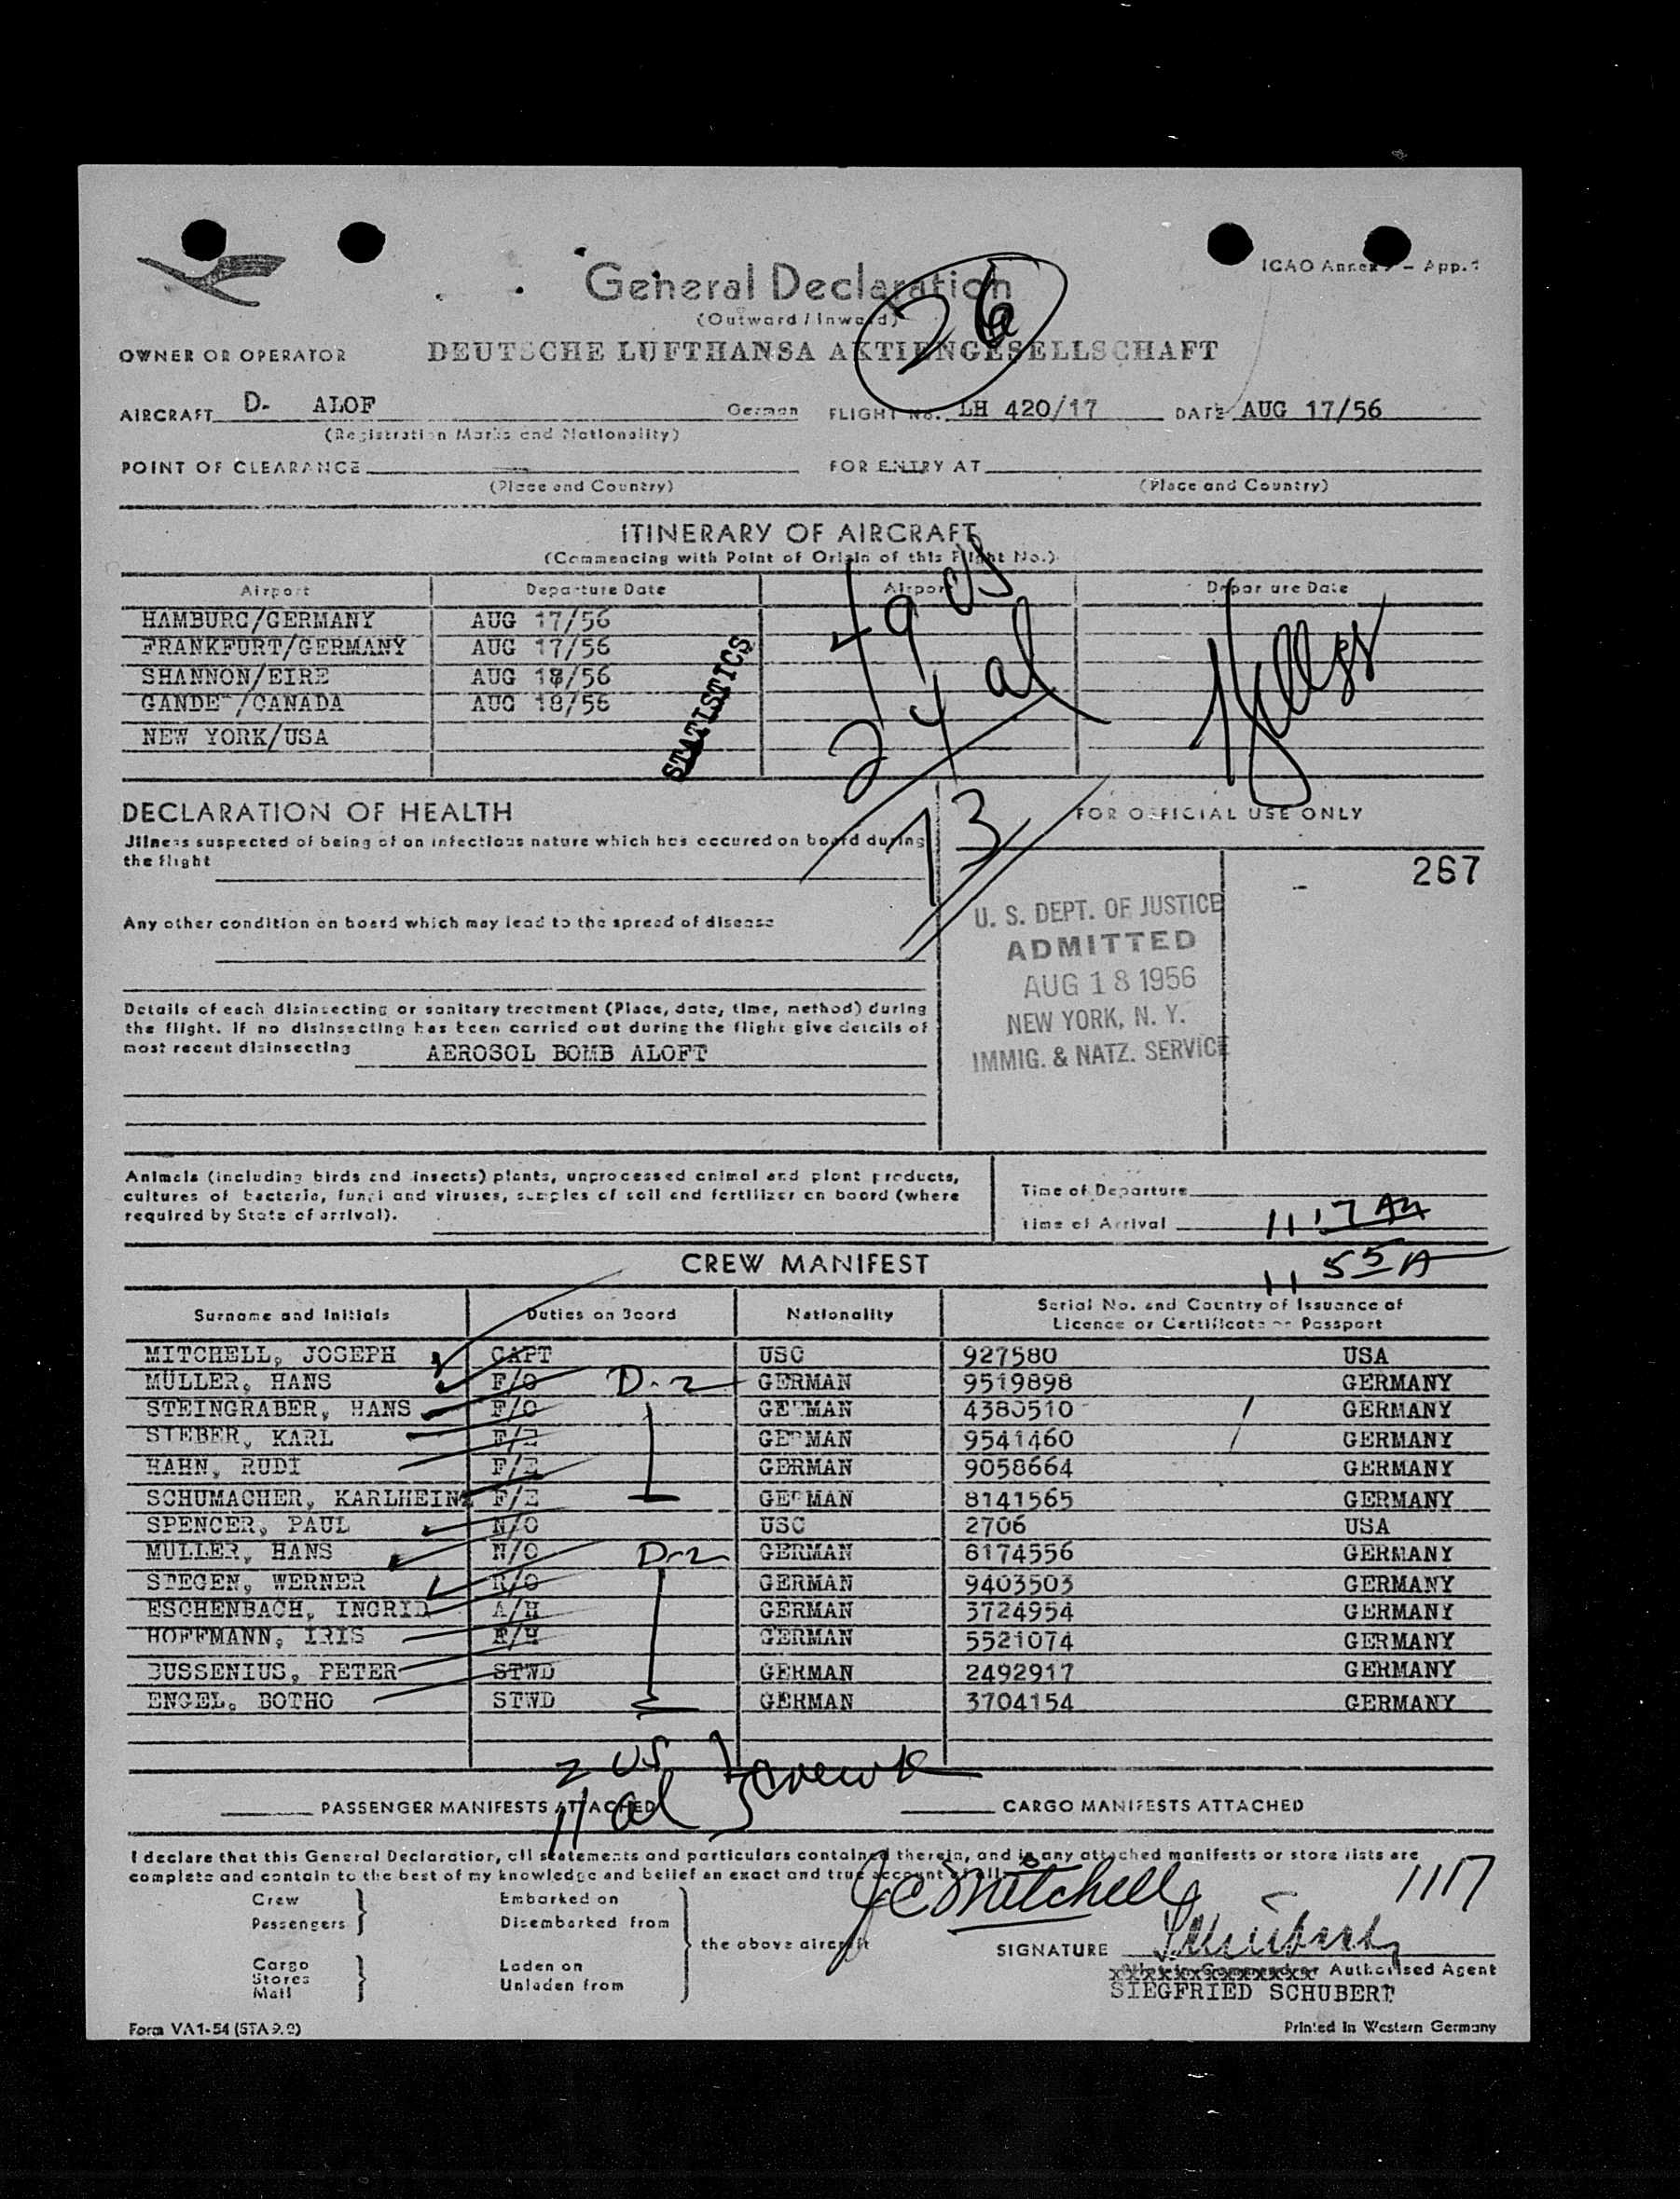 ICAO Annex 9 - App. 1
General Declaration
26
(Outward / Inward)
OWNER OR OPERATOR DEUTSCHE LUFTHANSA AKTIENGESELLSCHAFT
AIRCRAFT D- ALOF German FLIGHT No. LH 420/17 DATE AUG 17/56
(Registration Marks and Nationality)
POINT OF CLEARANCE FOR ENTRY AT
(Place and Country) (Place and Country)
ITINERARY OF AIRCRAFT
(Commencing with Point of Origin of this Flight No.)
Airport Departure Date Airport Departure Date
HAMBURG/GERMANY AUG 17/56
FRANKFURT/GERMANY AUG 17/56
SHANNON/EIRE AUG 18/56
GANDE /CANADA AUG 18/56
NEW YORK/USA
STATISTICS
49 US
24 al
73
DECLARATION OF HEALTH FOR OFFICIAL USE ONLY
Jilness suspected of being of an infectious nature which has occured on board during
the flight
267
Any other condition on board which may lead to the spread of disease
U. S. DEPT. OF JUSTICE
ADMITTED
AUG 18 1956
NEW YORK, N. Y.
IMMIG. & NATZ. SERVICE
Details of each disinsecting or sanitary treatment (Place, date, time, method) during
the flight. If no disinsecting has been carried out during the flight give details of
most recent disinsecting AEROSOL BOMB ALOFT
Animals (including birds and insects) plants, unprocessed animal and plant products,
cultures of bacteria, fungi and viruses, samples of soil and fertilizer on board (where
required by State of arrival).
Time of Departure
Time of Arrival 11 17 AM
11 55 A
CREW MANIFEST
Surname and Initials Duties on Board Nationality Serial No. and Country of Issuance of
Licence or Certificate or Passport
MITCHELL, JOSEPH CAPT USC 927580 USA
MÜLLER, HANS F/O D-2 GERMAN 9519898 GERMANY
STEINGRABER, HANS F/O GERMAN 4380510 GERMANY
SIEBER, KARL F/E GERMAN 9541460 GERMANY
HAHN, RUDI F/E GERMAN 9058664 GERMANY
SCHUMACHER, KARLHEINZ F/E GERMAN 8141565 GERMANY
SPENCER, PAUL N/O USC 2706 USA
MULLER, HANS N/O D-2 GERMAN 8174556 GERMANY
STEGEN, WERNER R/O GERMAN 9403503 GERMANY
ESCHENBACH, INGRID A/H GERMAN 3724954 GERMANY
HOFFMANN, IRIS A/H GERMAN 5521074 GERMANY
BUSSENIUS, PETER STWD GERMAN 2492917 GERMANY
ENGEL, BOTHO STWD GERMAN 3704154 GERMANY
2 US
11 al
PASSENGER MANIFESTS ATTACHED CARGO MANIFESTS ATTACHED
I declare that this General Declaration, all statements and particulars contained therein, and in any attached manifests or store lists are
complete and contain to the best of my knowledge and belief an exact and true account of all:
Crew Embarked on
Passengers Disembarked from
the above aircraft
Cargo Laden on
Stores Unladen from
Mail
J C Mitchell 1117
SIGNATURE
Authorised Agent
SIEGFRIED SCHUBERT
Form VA1-54 (STA 9.2) Printed in Western Germany